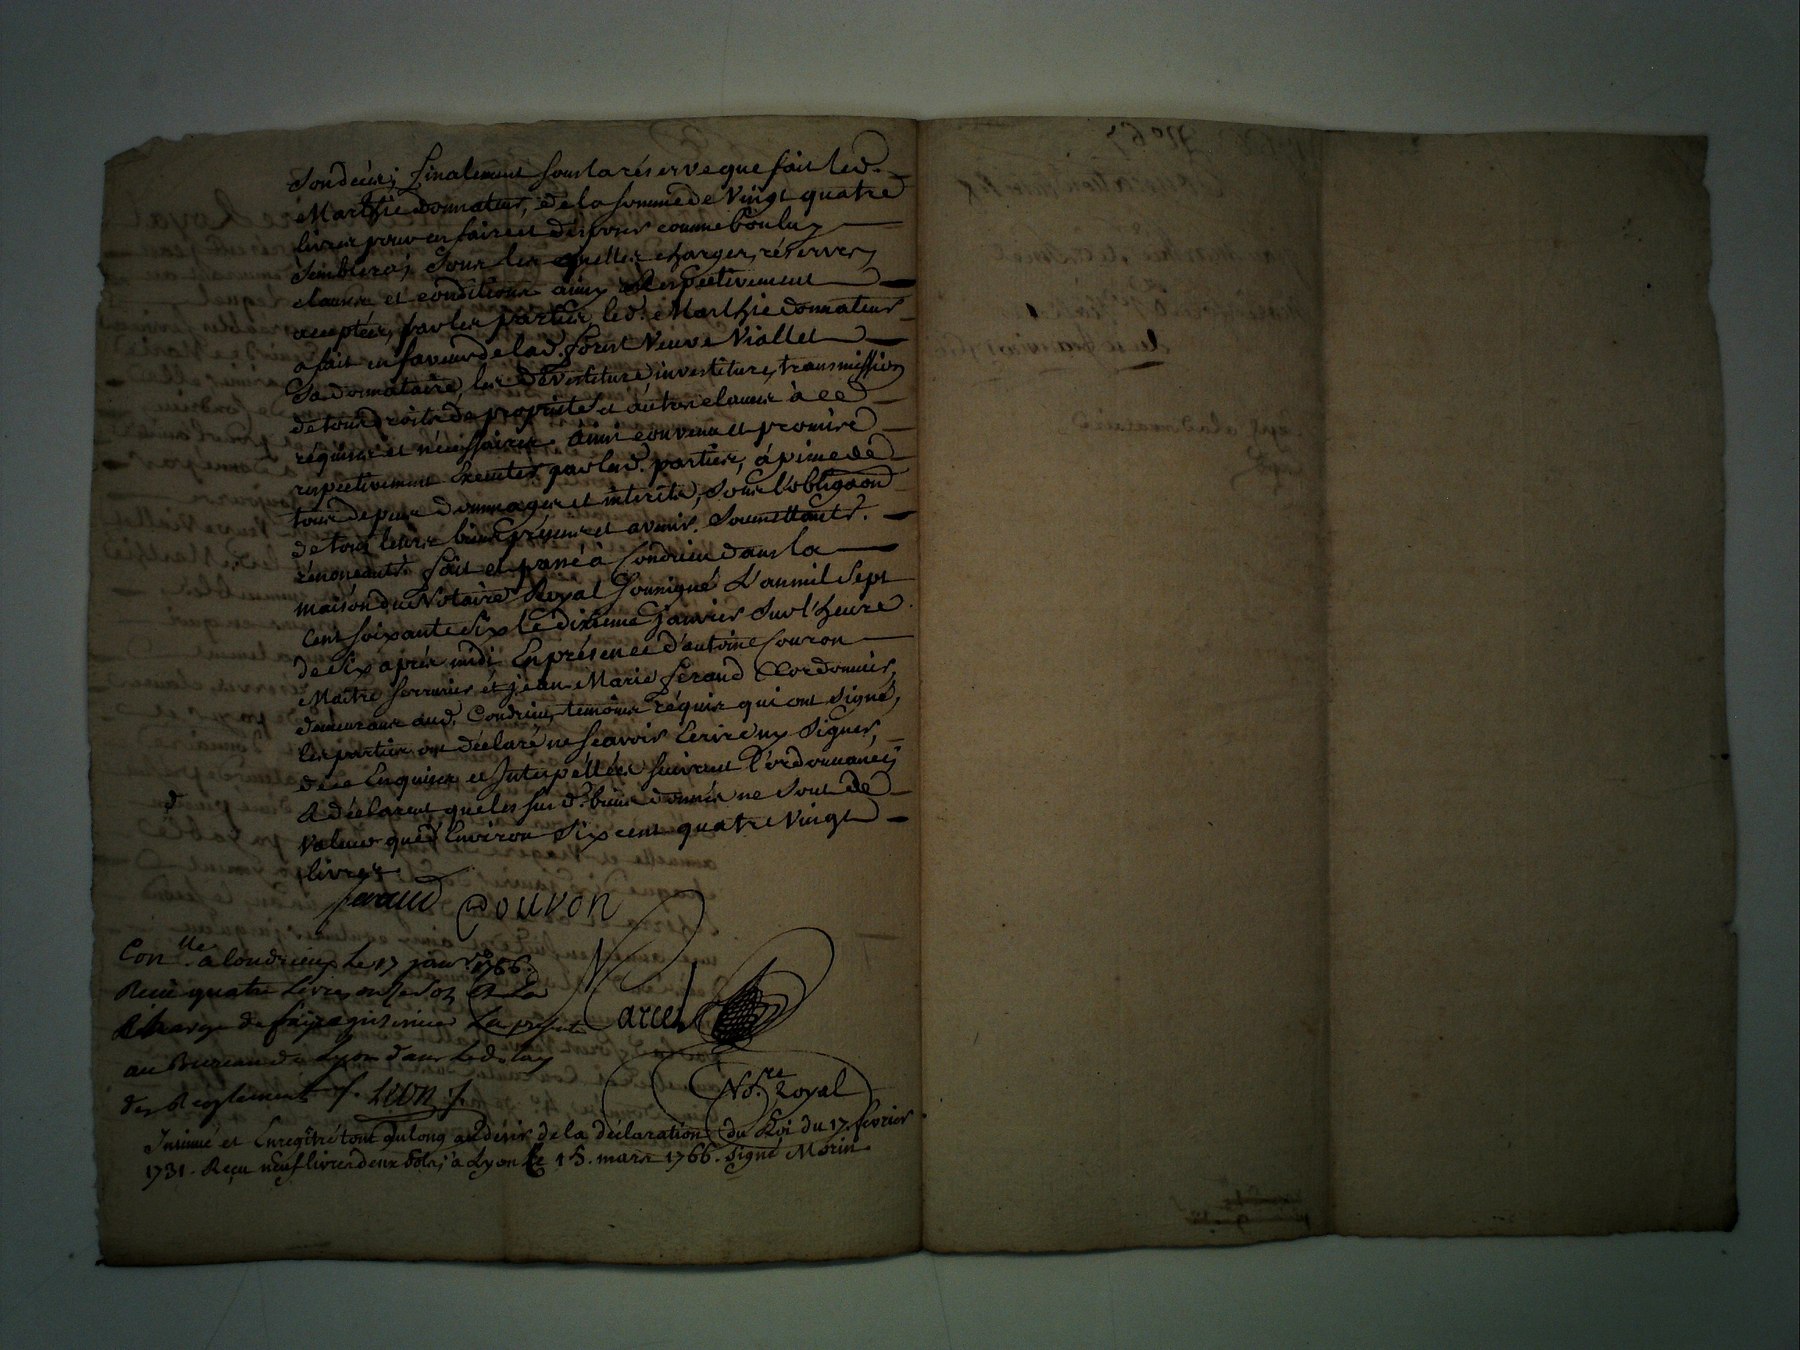 son decés; finalement sous la réserve que fait led.
Marthie donnateur, de la somme de Vingt quatre
livres pour en faire et disposer comme bon luy
semblera; Sous les quelles charges, réserves,
clauses et conditions ainsy Respectivement
acceptées, par les parties, led. Marthie donnateur
a fait en faveur de lad. forest Veuve Viallet
Sa donnataire, les dévestiture, investiture, transmission
de tous droits de propriété et autres clauses à ce
requises et nécessaires. Ainsi convenu et promis
respectivement Executer par lesd. parties, à peine de
tous depens dommages et interets, sous l'obligaõn
de tous leurs biens présents et avenir. Soumettants.
rénonceants. fait et passé à Condrieu dans la
maison du Notaire Royal Soussigné L'an mil sept
cent soixante six le dixieme Janvier sur l'heure
de six après midi En présence d'antoine Couron
Maitre serrurier et jean-Marie feraud Cordonnier,
demeurans aud. Condrieu, témoins réquis qui ont signé,
les parties ont déclaré ne sçavoir Ecrire ny Signer,
de ce Enquises et Interpéllées suivant l'ordonnance;
& déclarent que les susd. biens donnés ne sont de
valeur que d'Environ Six cent quatre Vingt
livres.
feraud Couron
Con.lle a Condrieu Le 17 janv. 1766.
Reçu quatre Livres onze sols Et La
charge de faire insinuer La presente
au Bureau de Lyon dans Le delay
des Reglements
Carcel
No.re Royal
Insinué et Enregitré tout du long au désir de la déclaration du Roi du 17. fevrier
1731. Reçu neuf livres deux sols, à Lyon Le 15. mars 1766. Signé Morin